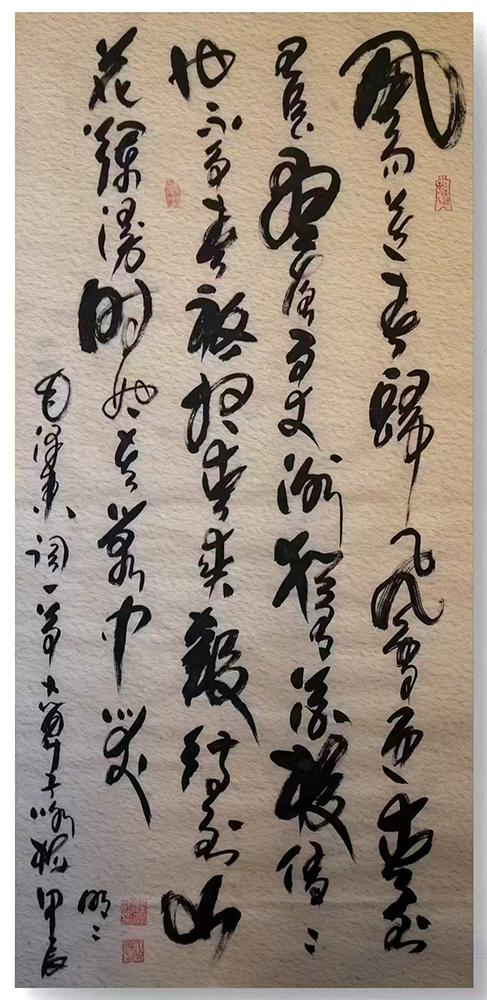 風雨送春歸飛雪迎春到
已是懸崖百丈冰猶有花枝俏々
也不爭春祇把春來報待到山
花爛漫時她在叢中笑
毛澤東詞一首卜算子詠梅甲辰
明々